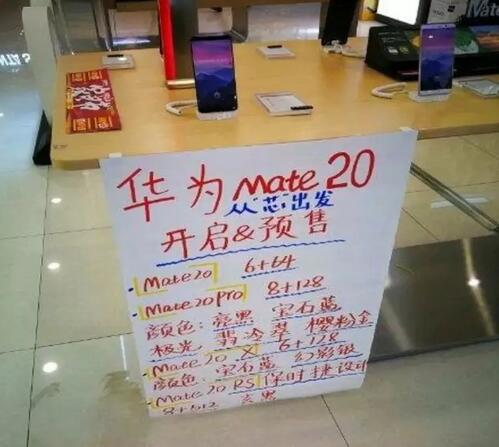 华为 Mate 20
从"芯"出发
开启&预售
Mate20 6+64
Mate20 Pro 8+128
颜色:亮黑 宝石蓝
极光 翡冷翠 樱粉金
Mate 20 X 6+128
颜色:宝石蓝 幻影银
Mate 20 RS 保时捷设计
8+512 玄黑